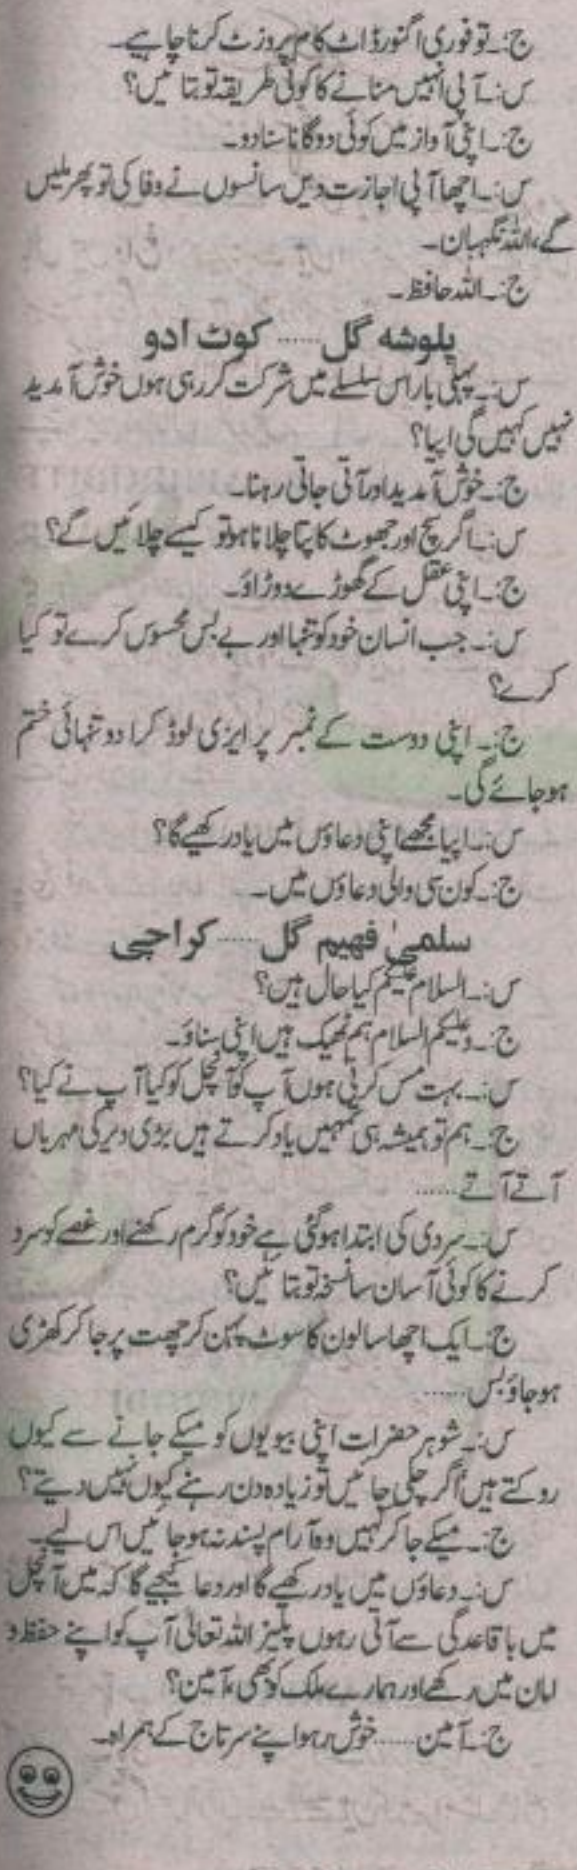 ج:۔ تو فوری اگنور ڈاٹ کام پر وزٹ کرنا چاہیے۔
س:۔ آپی انہیں منانے کا کوئی طریقہ تو بتائیں؟
ج:۔ اپنی آواز میں کوئی دوگانا سنا دو۔
س:۔ اچھا آپی اجازت دیں سانسوں نے وفا کی تو پھر ملیں
گے، اللہ نگہبان۔
ج:۔ اللہ حافظ۔
پلوشہ گل...... کوٹ ادو
س:۔ پہلی بار اس سلسلے میں شرکت کر رہی ہوں خوش آمدید
نہیں کہیں گی اپیا؟
ج:۔ خوش آمدید اور آتی جاتی رہنا۔
س:۔ اگر سچ اور جھوٹ کا پتا چلانا ہو تو کیسے چلائیں گے؟
ج:۔ اپنی عقل کے گھوڑے دوڑاؤ۔
س:۔ جب انسان خود کو تنہا اور بے بس محسوس کرے تو کیا
کرے؟
ج:۔ اپنی دوست کے نمبر پر ایزی لوڈ کرا دو تنہائی ختم
ہو جائے گی۔
س:۔ اپیا مجھے اپنی دعاؤں میں یاد رکھیے گا؟
ج:۔ کون سی والی دعاؤں میں۔
سلمیٰ فہیم گل...... کراچی
س:۔ السلام علیکم کیا حال ہیں؟
ج:۔ وعلیکم السلام ہم ٹھیک ہیں اپنی سناؤ۔
س:۔ بہت مس کرتی ہوں آپ کو آنچل کو کیا آپ نے کیا؟
ج:۔ ہم تو ہمیشہ ہی تمہیں یاد کرتے ہیں بڑی دیر کی مہرباں
آتے آتے......
س:۔ سردی کی ابتدا ہوگئی ہے خود کو گرم رکھنے اور غصے کو سرد
کرنے کا کوئی آسان سا نسخہ تو بتائیں؟
ج:۔ ایک اچھا سا لون کا سوٹ پہن کر چھت پر جا کر کھڑی
ہو جاؤ بس......
س:۔ شوہر حضرات اپنی بیویوں کو میکے جانے سے کیوں
روکتے ہیں اگر چلی جائیں تو زیادہ دن رہنے کیوں نہیں دیتے؟
ج:۔ میکے جا کر کہیں وہ آرام پسند نہ ہو جائیں اس لیے۔
س:۔ دعاؤں میں یاد رکھیے گا اور دعا کیجیے گا کہ میں آنچل
میں باقاعدگی سے آتی رہوں پلیز اللہ تعالیٰ آپ کو اپنے حفظ و
امان میں رکھے اور ہمارے ملک کو بھی، آمین؟
ج:۔ آمین...... خوش رہو اپنے سرتاج کے ہمراہ۔